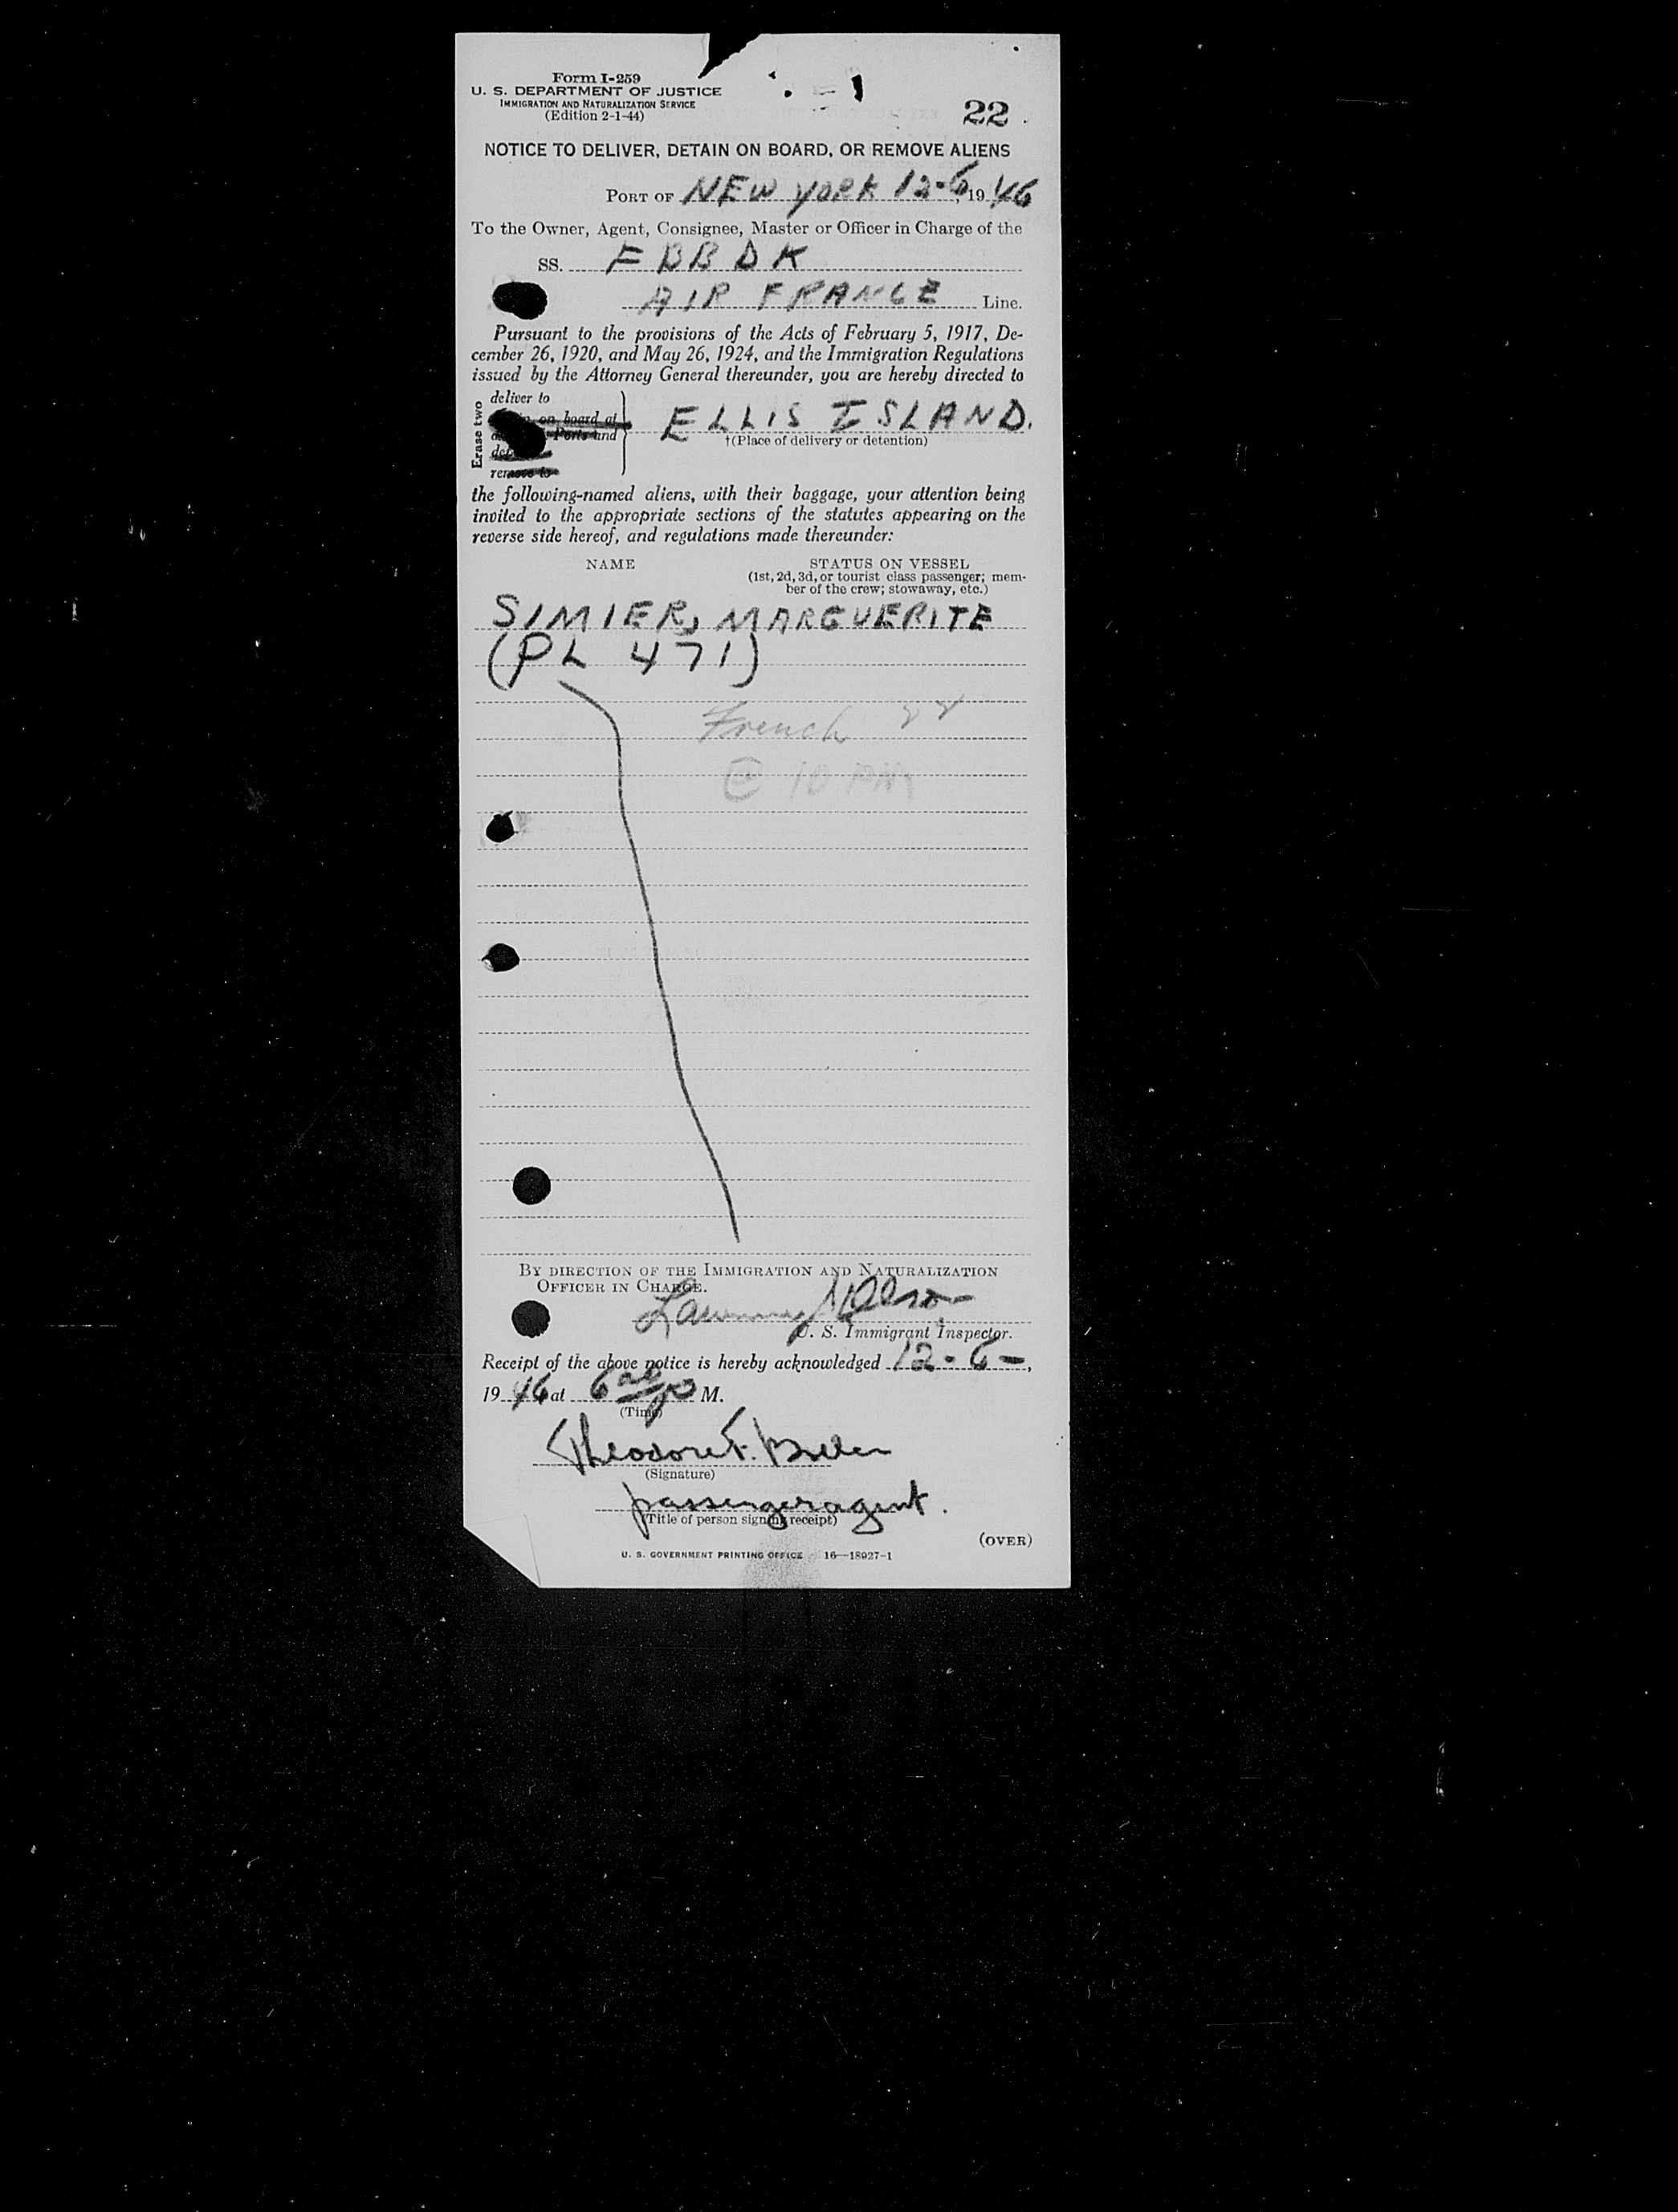 Form I-259
U. S. DEPARTMENT OF JUSTICE
IMMIGRATION AND NATURALIZATION SERVICE
(Edition 2-1-44)
22
NOTICE TO DELIVER, DETAIN ON BOARD, OR REMOVE ALIENS
PORT OF NEW YORK 12-6, 1946
To the Owner, Agent, Consignee, Master or Officer in Charge of the
SS. F BBDK
AIR FRANCE Line.
Pursuant to the provisions of the Acts of February 5, 1917, De-
cember 26, 1920, and May 26, 1924, and the Immigration Regulations
issued by the Attorney General thereunder, you are hereby directed to
Erase two
deliver to
on board at
Ports and
remove to
ELLIS ISLAND.
†(Place of delivery or detention)
the following-named aliens, with their baggage, your attention being
invited to the appropriate sections of the statutes appearing on the
reverse side hereof, and regulations made thereunder:
NAME
STATUS ON VESSEL
(1st, 2d, 3d, or tourist class passenger; mem-
ber of the crew; stowaway, etc.)
SIMIER, MARGUERITE
(PL 471)
French
@ 10 PM
BY DIRECTION OF THE IMMIGRATION AND NATURALIZATION
OFFICER IN CHARGE.
U. S. Immigrant Inspector.
Receipt of the above notice is hereby acknowledged 12-6-,
1946 at 6 P M.
(Time)
Theodore F.
(Signature)
passenger agent.
(Title of person signing receipt)
(OVER)
U. S. GOVERNMENT PRINTING OFFICE 16—18927-1